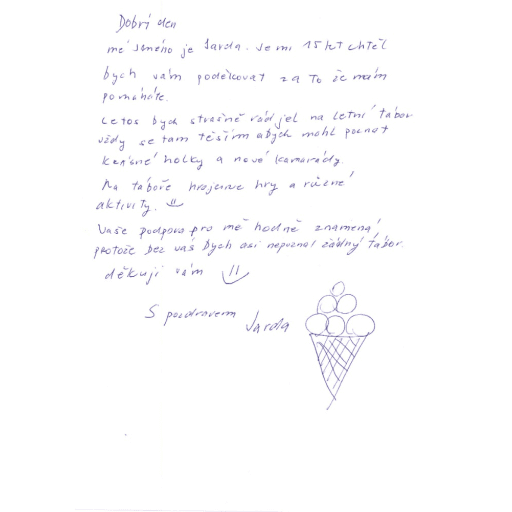 Dobrí den
mé jméno je Jarda. Je mi 15 let chtěl
bych vám poděkovat za to že nám
pomaháte.
Letos bych strašně rád jel na letní tábor
vždy se tam těším abych mohl poznat
krásné holky a nové kamarády.
Na táboře hrajeme hry a různé
aktivity.
Vaše podpora pro mě hodně znamená
protože bez vás bych asi nepoznal žádný tábor.
děkuji vám
S pozdravem Jarda